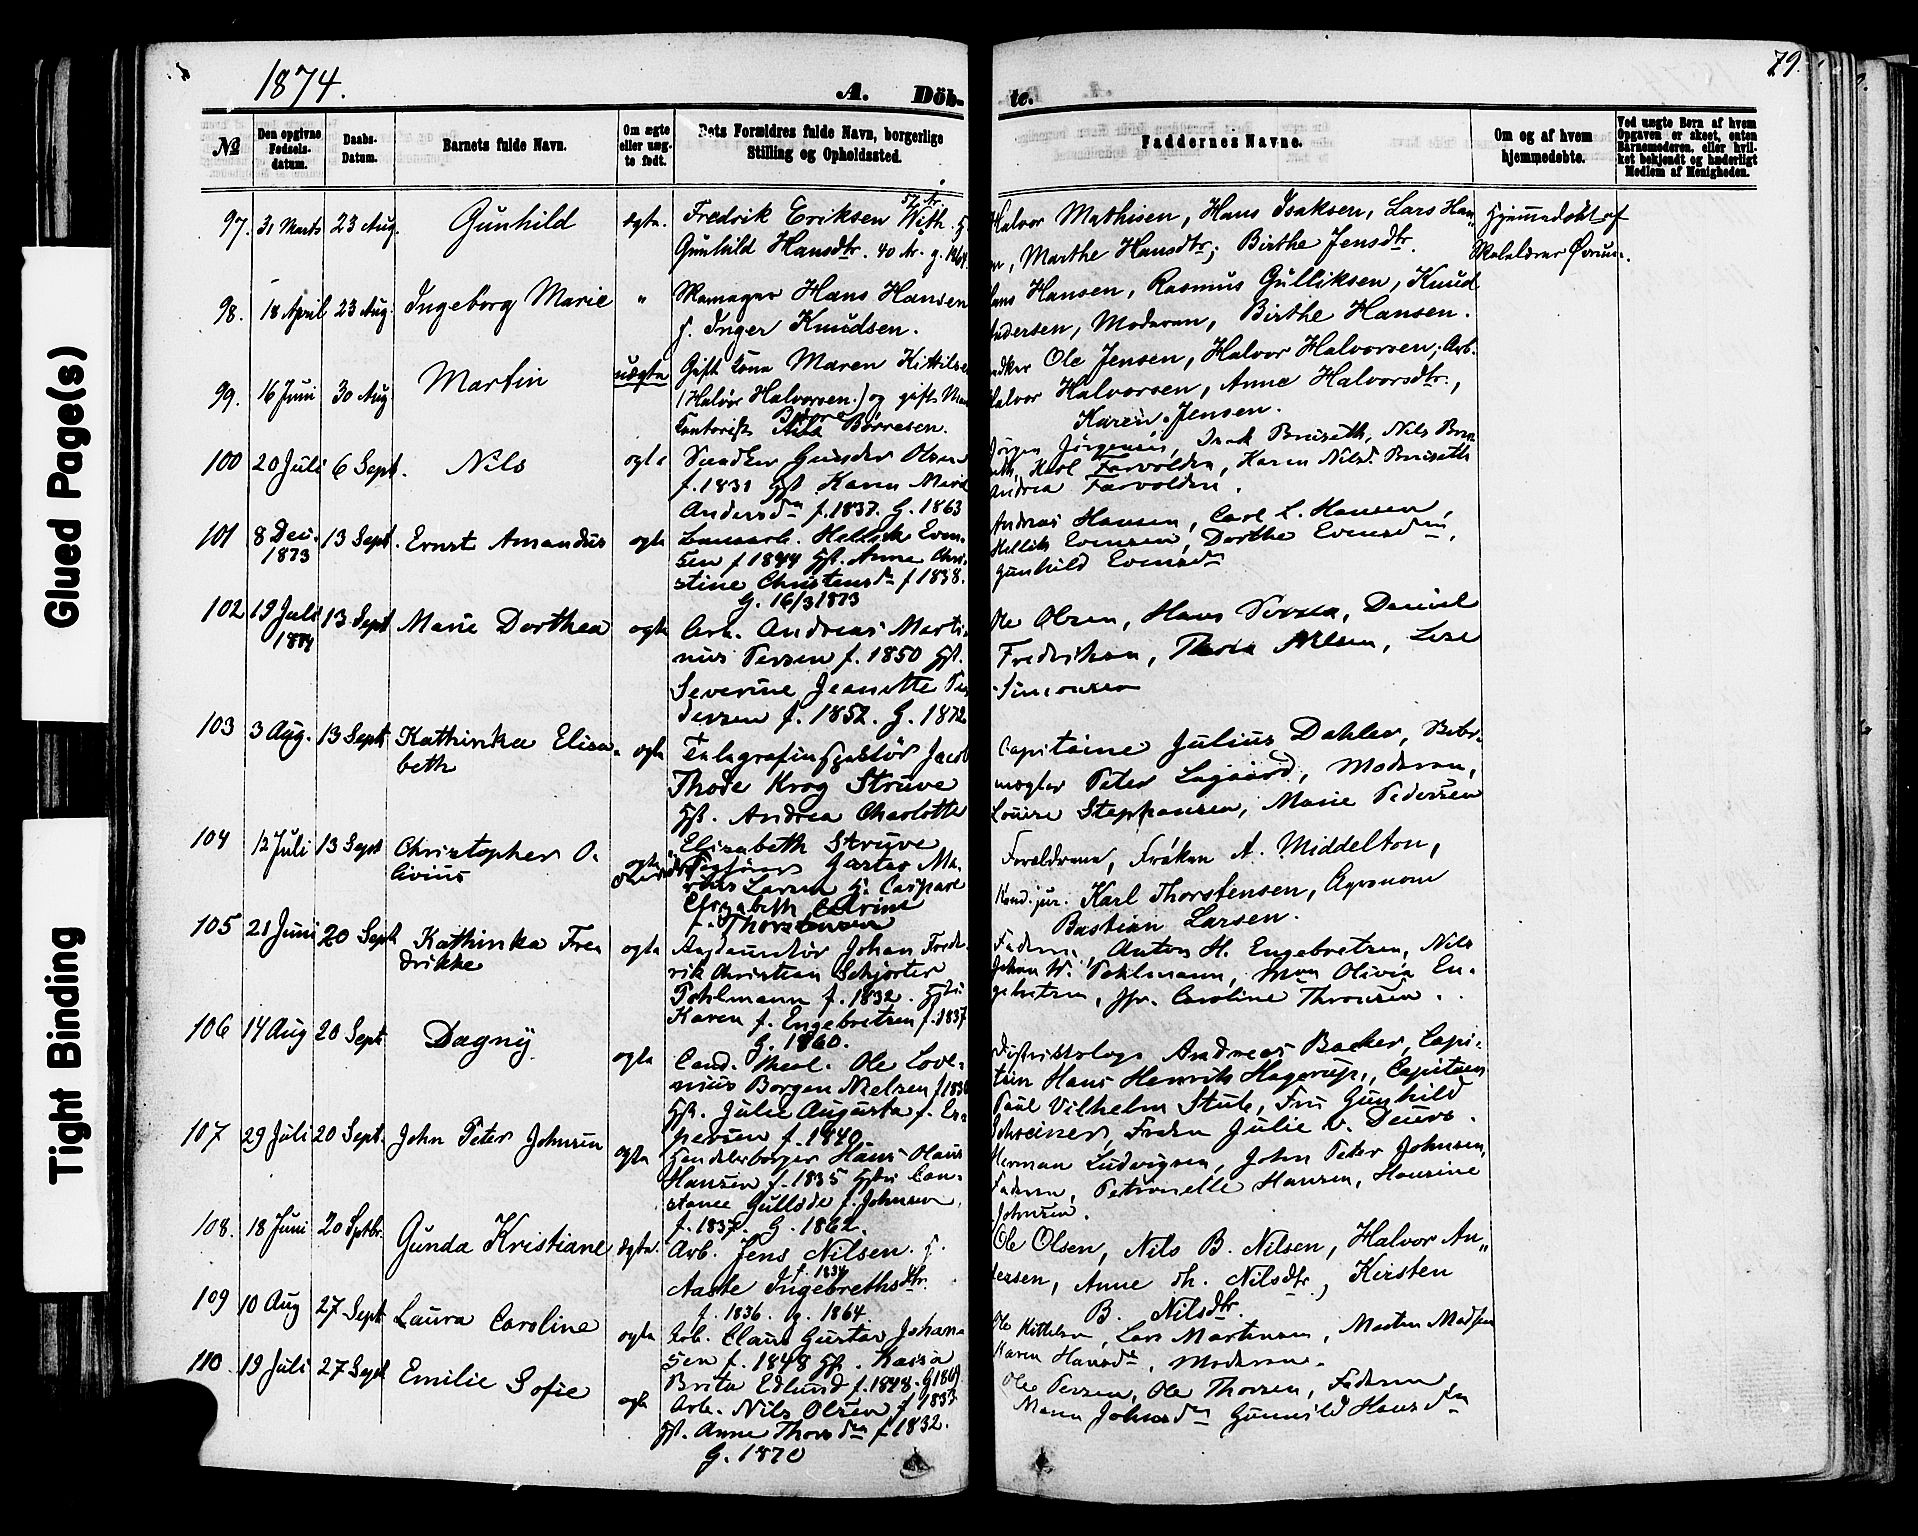 1874.
A. Döb-
te.
79.
№
Den opgivne Fødsels-datum.
Daabs-Datum.
Barnets fulde Navn.
Om ægte eller uæg-te født.
Dets Forældres fulde Navn, borgerlige Stilling og Opholdssted.
Faddernes Navne.
Om og af hvem hjemmedøbte.
Ved uægte Børn af hvem Opgaven er skeet, enten Barnemoderen, eller hvil-ket bekjendt og hæderligt Medlem af Menigheden.
97. 31 Marts 23 Aug. Gunhild ægte. Fredrik Eriksen With
Gunhild Hansdtr. 40 Ar. g. 1864
Halvor Mathisen, Hans Isaksen, Lars Han„
Marthe Hansdtr; Birthe Jensdtr.
Hjemmedøbt af
98. 18 April 23 Aug. Ingeborg Marie " Skomager Hans Hansen
f. Inger Knudsen.
Hansen, Rasmus Gulliksen, Knud
Andersen, Moderen, Birthe Hansen.
99. 16 Juni 30 Aug. Martin uægte Gift Kone Maren Kittils
(Halvor Halvorsen.) og gift
Kontorist Børresen.
Ole Jensen, Halvor Halvorsen; Arb.
Halvor Halvorsen, Anne Halvorsdtr.,
Karen Jensen.
100 20 Juli 6 Sept. Nils ogte Snedker Gunder Olsen
f. 1831 Hst. Karen Marie
Andersdn f. 1837. G. 1863
Jørgen Jørgensen, Isak Bruseth, Nils Bru
seth, Karl Farvolden, Karen Nilsd. Bruseth
Andrea Farvolden.
101 8 Dec. 1873 13 Sept. Ernst Amandus ogte Hellik Even
sen f 1844 Hst. Anne Chri-
stine Christensdn f 1838.
G. 16/3 1873
Andreas Hansen, Carl L. Hansen,
Hellik Evensen, Dorthe Evensdn,
Gunhild Evensdn
102 19 Juli 1874 13 Sept Marie Dorthea ogte Arb. Andreas Marti-
nius Persen f. 1850 Hst.
Severine Jeanette Pe
dersen f. 1852. G. 1872
Ole Olsen, Hans Persen, Daniel
Fredriksen, Nilsen, Lise
Simonsen
103 3 Aug. 13 Sept Kathinka Elisa-
beth ogte Telegrafinspektør Jacob
Thode Krog Struve
Hst. Andrea Charlotte
Elisabeth Struve
Capitaine Julius Dahler, Beder-
mægler Peter Lagaard, Moderen,
Louise Stephansen, Marie Pedersen
104 12 Juli 13 Sept Christopher O-
livius ogte Gustav Ma-
rius Larsen H. Caspare
Elisabeth Catrine
f. Thorstensen
Forældrene, Frøken A. Middelton,
Kand. jur. Karl Thorstensen, Agronom
Bastian Larsen.
105 21 Juni 20 Sept Kathinka Fre
drikke ogte Johan Frede-
rik Christian Schjorter
Pohlmann f. 1832. Hst.
Karen f. Engebretsen f. 1837
G. 1860.
Faderen, Anton H. Engebretsen, Nils
Johan W. Pohlmann, Mon Olivia En-
gebretsen, Jfr. Caroline Thronsen.
106 14 Aug 20 Sept. Dagny ogte Cand. Theol. Ole Love-
nius Borgen Nielsen f 1836
Hst. Julie Augusta f. Es
persen f. 1840
Distriktslæge Andreas Backer, Capi-
tain Hans Henrik Hagerup, Capitain
Paul Vilhelm Stub, Fru Gunhild
Schreiner, Frøken Julie v. Deurs.
107 29 Juli 20 Sept. John Peter Johnsen ogte Handelsborger Hans Olaus
Hansen f. 1835 Hst. Con-
stance Gullsde f. Johnsen
f. 1837. G. 1862.
Herman Ludvigsen, John Peter Johnsen,
Faderen, Petronelle Hansen, Hansine
Johnsen.
108. 18 Juni 20 Septbr. Gunda Kristiane ægte. Arb. Jens Nilsen.
f. 1834
Aaste Ingebrethsdtr.
f. 1836. g. 1864.
Ole Olsen, Nils B. Nilsen, Halvor An„
dersen, Anne Th. Nilsdtr, Kirsten
B. Nilsdtr.
109 10 Aug 27 Sept Laura Caroline ogte Arb. Claus Gustav Johan-
sen f. 1848 Hst. Kaisa
Brita Edlund f. 1848. G 1869
Ole Kittelsen, Lars Martinsen, Morten Madsen
Karen Hansdn, Moderen.
110. 19 Juli 27 Sept Emilie Sofie ogte Arb. Nils Olsen f 1833
Hst. Anne Thorsdn f 1832.
G. 1870
Ole Persen, Ole Thorsen, Faderen
Maren Johnsdn Gunnild Hansdn
Glued Page(s)
Tight Binding